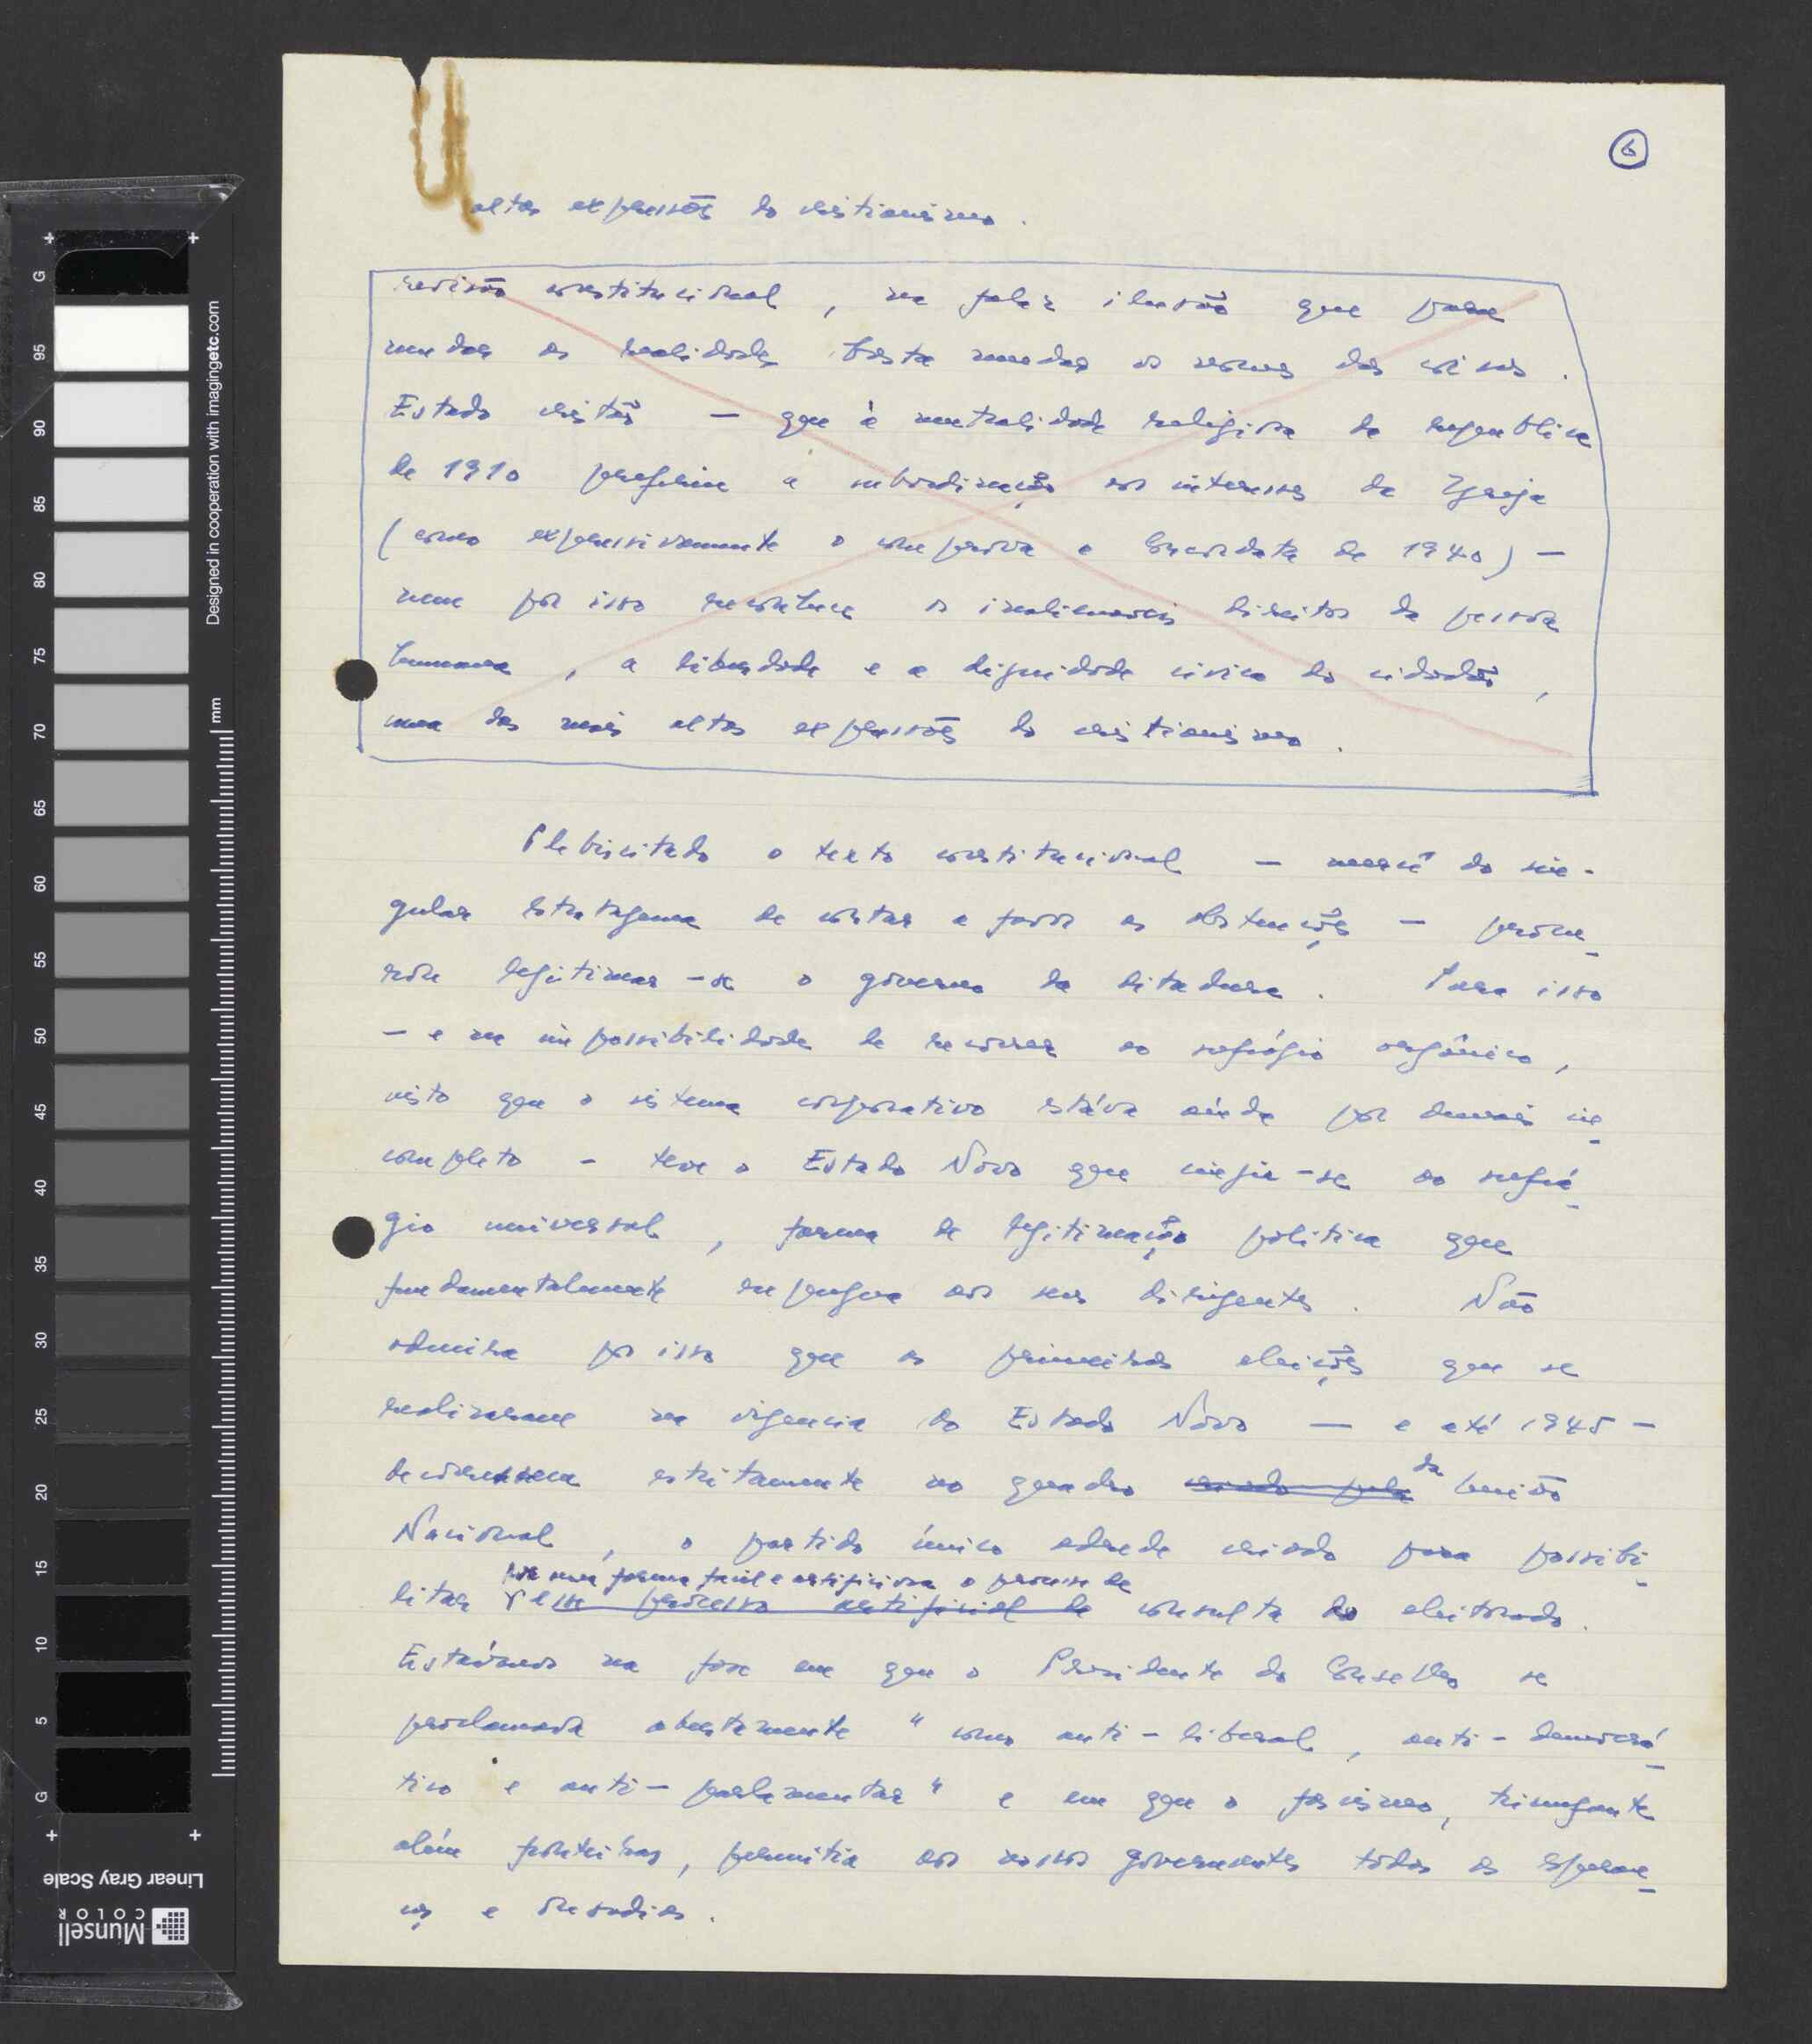 6
altas expressões do cristianismo.
revisão constitucional, na falaz ilusão que para
mudar as realidades basta mudar os nomes das coisas.
Estado cristão — que à neutralidade religiosa da república
de 1910 preferiu a subordinação aos interesses da Igreja
(como expressivamente o comprova a Concordata de 1940) —
nem por isso reconhece os inalienáveis direitos da pessoa
humana, a liberdade e a dignidade cívica do cidadão,
uma das mais altas expressões do cristianismo.
Plebiscitado o texto constitucional — mercê do sin-
gular estratagema de contar a favor as abstenções — procu-
rou legitimar-se o governo da ditadura. Para isso
— e na impossibilidade de recorrer ao sufrágio orgânico,
visto que o sistema corporativo estáva ainda por demais in-
completo — teve o Estado Novo que cingir-se ao sufrá-
gio universal, forma de legitimação politica que
fundamentalmente repugna aos seus dirigentes. Não
admira por isso que as primeiras eleições que se
realizaram na vigencia do Estado Novo — e até 1945 —
decorressem estritamente no quadro criado pela da União
Nacional, o partido único adrede criado para possibi-
por uma forma facil e artificiosa o processo de
litar esse processo artificial de consulta do eleitorado.
Estávamos na fase em que o Presidente do Conselho se
proclamava abertamente "como anti-liberal, anti-democrá-
tico e anti-parlamentar" e em que o fascismo, triunfante
além fronteiras, permitia aos nossos governantes todas as esperan-
ças e ousadias.
Designed in cooperation with imagingetc.com
mm
G 95 90 85 80 75 70 65 60 55 50 45 40 35 30 25 20 15 10 5 G
Linear Gray Scale
Munsell
COLOR